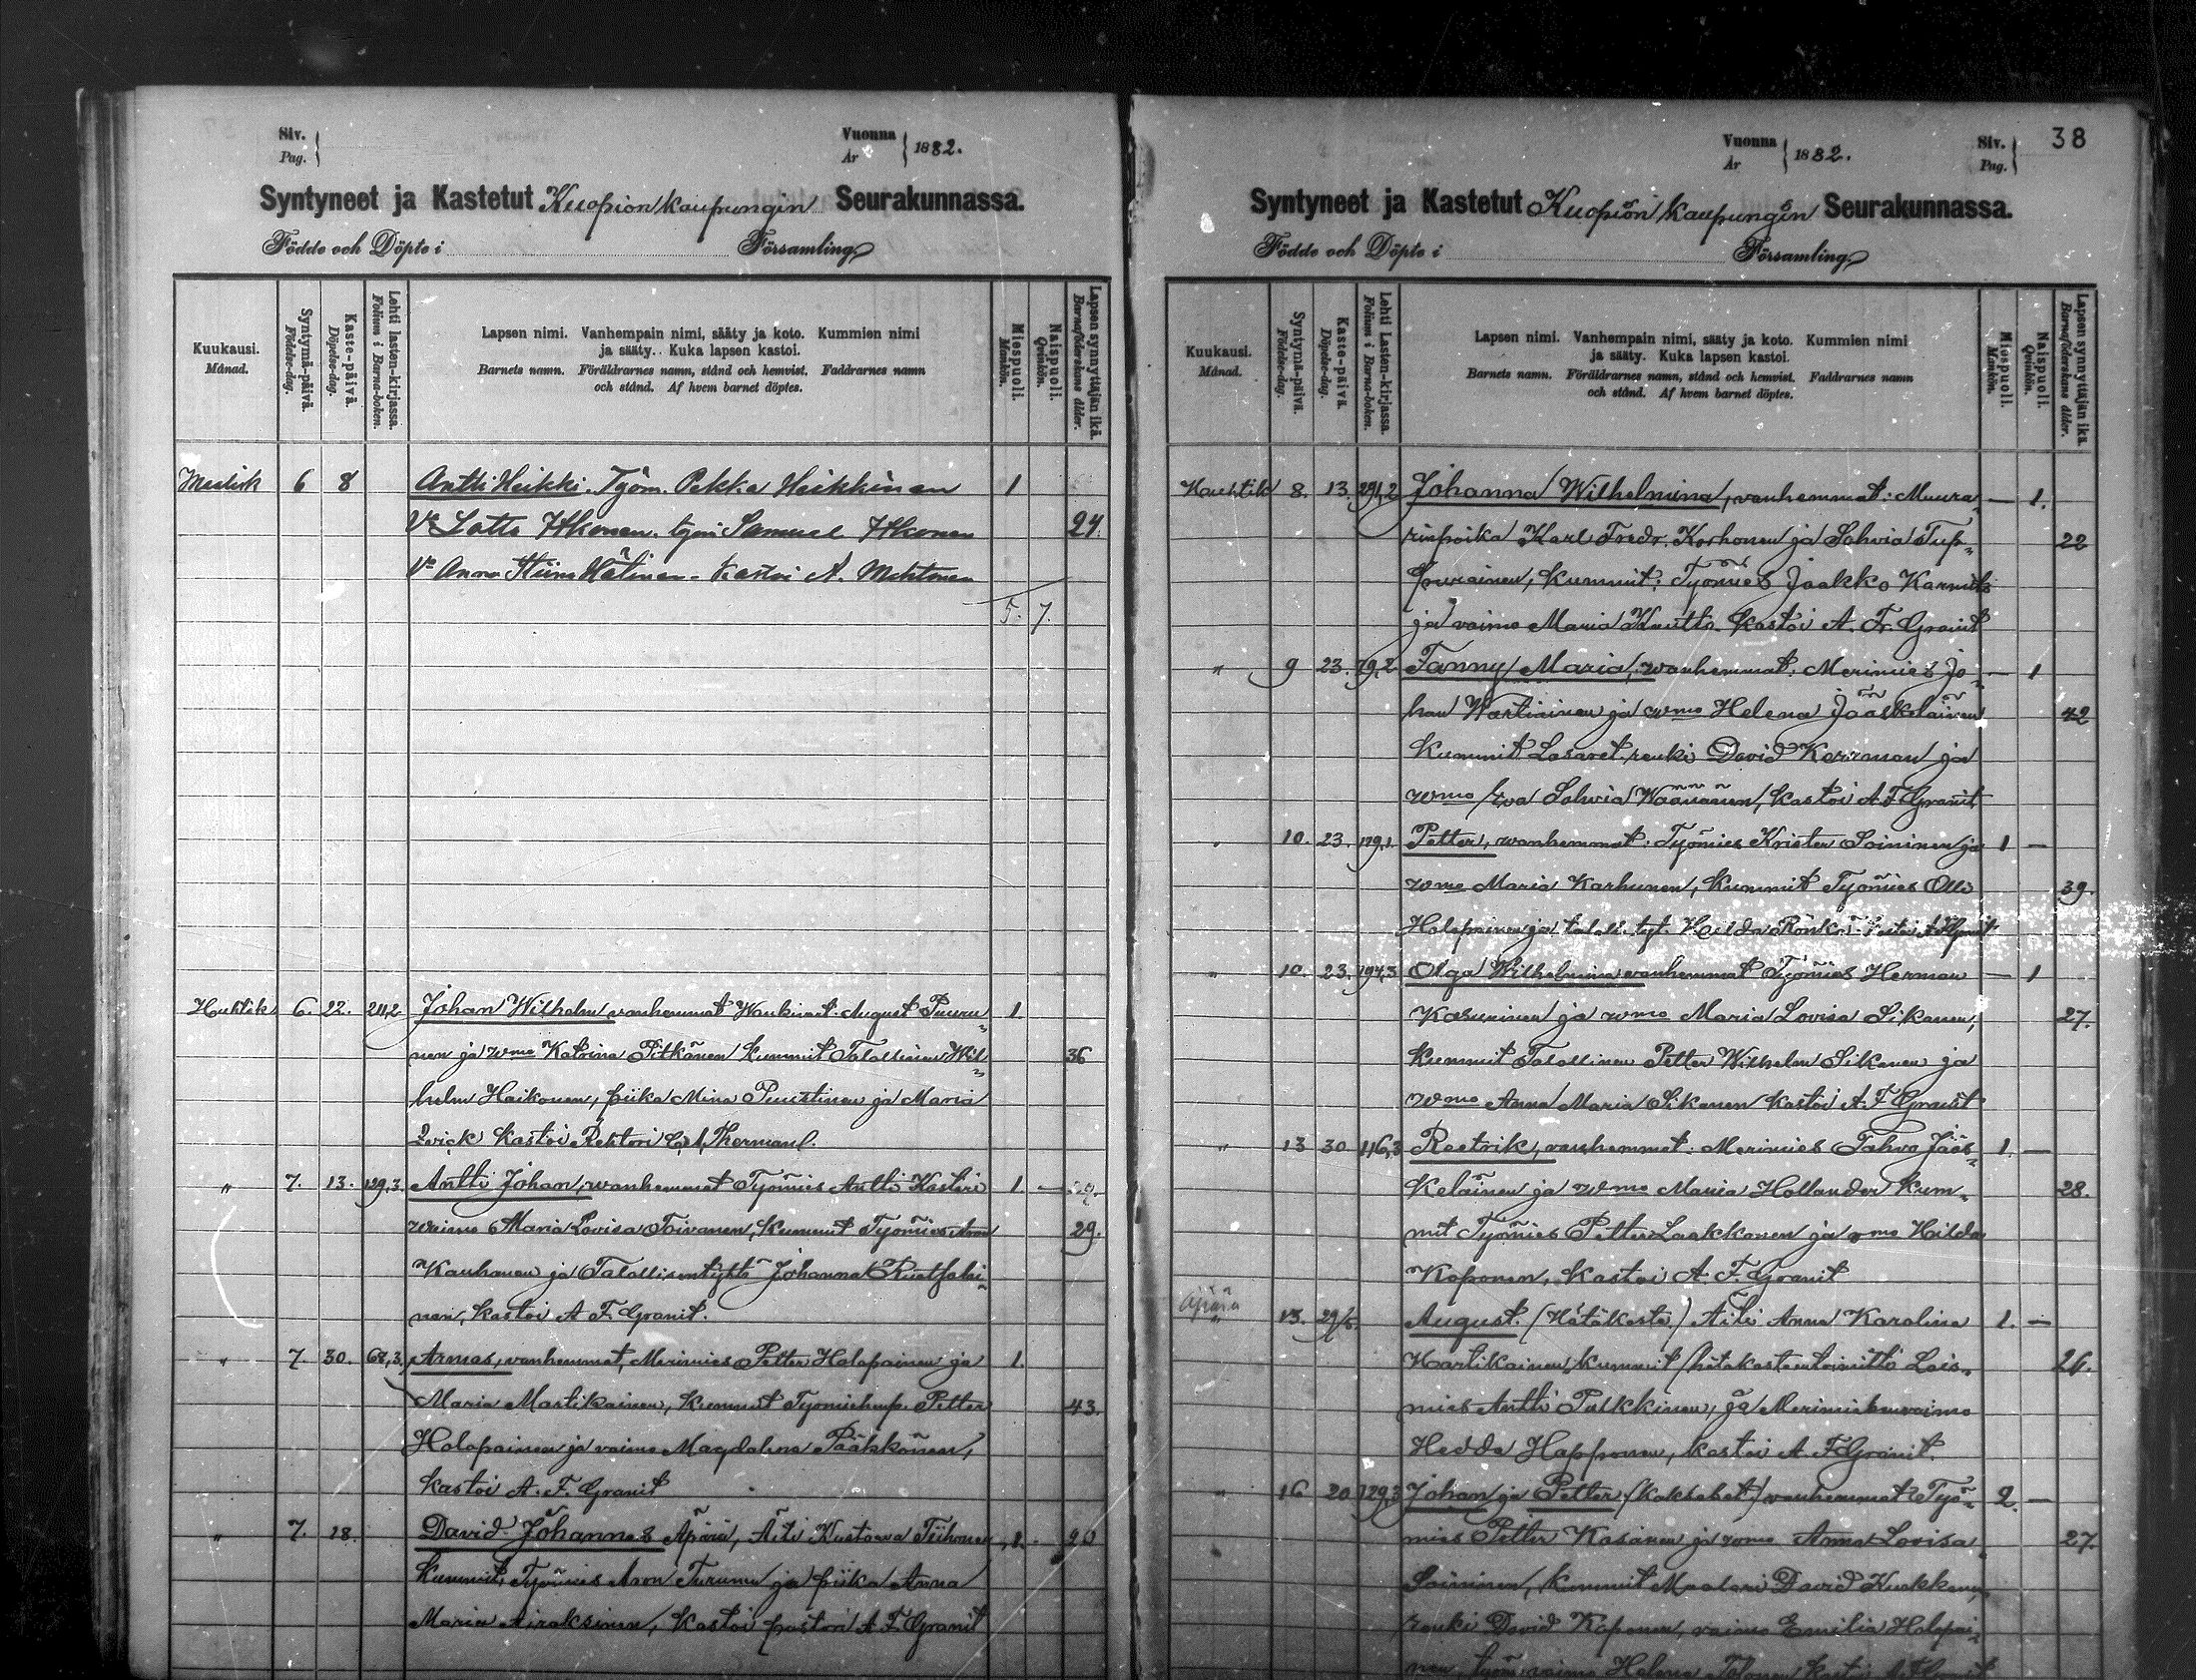 Siv.
Pag.
Vuonna
År
1882.
Syntyneet ja Kastetut Kuopion kaupungin Seurakunnassa.
Födde och Döpte i Församling
Kuukausi.
Månad.
Syntymä-päivä.
Födelse-dag.
Kaste-päivä.
Döpelse-dag.
Lehti lasten-kirjassa.
Folium i Barna-boken.
Lapsen nimi. Vanhempain nimi, sääty ja koto. Kummien nimi
ja sääty. Kuka lapsen kastoi.
Barnets namn. Föräldrarnes namn, stånd och hemvist. Faddrarnes namn
och stånd. Af hvem barnet döptes.
Miespuoli.
Mankön.
Naispuoli.
Qvinkön.
Lapsen synnyttäjän ikä.
Barnaföderskans ålder.
6 8 Antti Heikki. Työm. Pekka Heikkinen 1
Vo Lotta Itkonen. työm Samuel Itkonen 24
Vo Anna Stiina Hätinen. Kastoi A. Mehtonen
5. 7.
Huhtik 6. 22. Johan Wilhelm vanhemmat August Puuru 1.
nen ja wmo Katrina Pitkänen kummit Talollinen Wil 36
helm Haikonen, piika Mina Puustinen ja Maria
kastoi Rehtori
" 7. 13. 129,3. Antti Johan, wanhemmat Työmies Antti 1. —
waimo Maria Lovisa Toivanen, Kummit Työmies 29.
Kauhanen ja Talollisentyttö Johanna
nen, Kastoi A F. Granit.
" 7. 30. 68,3. Armas, vanhemmat, Merimies Petter Holopainen ja 1.
Maria Martikainen, Kummit Petter 43.
Holopainen ja vaimo Magdalena Pääkkönen,
Kastoi A. F. Granit
" 7. 18. David Johannes Äpärä, Äiti Kustaava Tiihonen 1. 20
Kummit, Työmies Aron Turunen ja piika Anna
Maria Airaksinen, Kastoi pastori A F. Granit
Vuonna
År
1882.
Siv.
Pag.
38
Syntyneet ja Kastetut Kuopion kaupungin Seurakunnassa.
Födde och Döpte i Församling
Kuukausi.
Månad.
Syntymä-päivä.
Födelse-dag.
Kaste-päivä.
Döpelse-dag.
Lehti Lasten-kirjassa.
Folium i Barna-boken.
Lapsen nimi. Vanhempain nimi, sääty ja koto. Kummien nimi
ja sääty. Kuka lapsen kastoi.
Barnets namn. Föräldrarnes namn, stånd och hemvist. Faddrarnes namn
och stånd. Af hvem barnet döptes.
Miespuoli.
Mankön.
Naispuoli.
Qvinkön.
Lapsen synnyttäjän ikä.
Barnaföderskans ålder.
Huhtik 8. 13. 291,2 Johanna Wilhelmina, vanhemmat: Muura — 1.
rinpoika Karl Fredr. Korhonen ja Sohvia Tup 22
purainen, Kummit: Työmies Jaakko
ja vaimo Maria Knutto. Kastoi A. Fr. Granit
" 9 23. 79,2 Fanny Maria, wanhemmat. Merimies Jo — 1
han Wartiainen ja wmo Helena Jääskeläinen 42
Kummit Lasaret. renki David Karrman ja
wmo Eva Sohvia Wäänänen, Kastoi A. F Granit
" 10. 23. 179,1. Petter, wanhemmat: Työmies Krister Soininen ja 1 —
wmo Maria Karhunen, Kummit Työmies Olli 39.
Holopainen ja taloll. tyt. Hilda Rönkö
" 10. 23. 194,3 Olga Wilhelmina vanhemmat Työmies Herman — 1
Kasurinen ja wmo Maria Lovisa Sikanen, 27.
Kummit Talollinen Petter Wilhelm Sikanen ja
wmo Anna Maria Sikanen Kastoi A. F Granit
" 13 30 116,3 Reetrik, vanhemmat: Merimies Tahvo Jääs 1. —
keläinen ja wmo Maria Hollander Kum 28.
mit Työmies Petter Laakkonen ja wmo Hilda
Koponen, Kastoi A. F. Granit
Äpärä
" 13. 29/5. August. (Hätäkaste.) Äiti Anna Karolina 1. —
Hartikainen, Kummit (hätäkasteen toimitti Lois 26.
mies Antti Pulkkinen, ja Merimiehenvaimo
Hedda Happonen, Kastoi A. F Granit.
" 16 20 129,3 Johan ja Petter. (Kaksoset) wanhemmat Työ 2. —
mies Petter Kosänen ja wmo Anna Lovisa 27.
Soininen, Kummit Maalari David
renki David Koponen, vaimo Emilia Holopai
nen, työm. vaimo Helena Tolonen